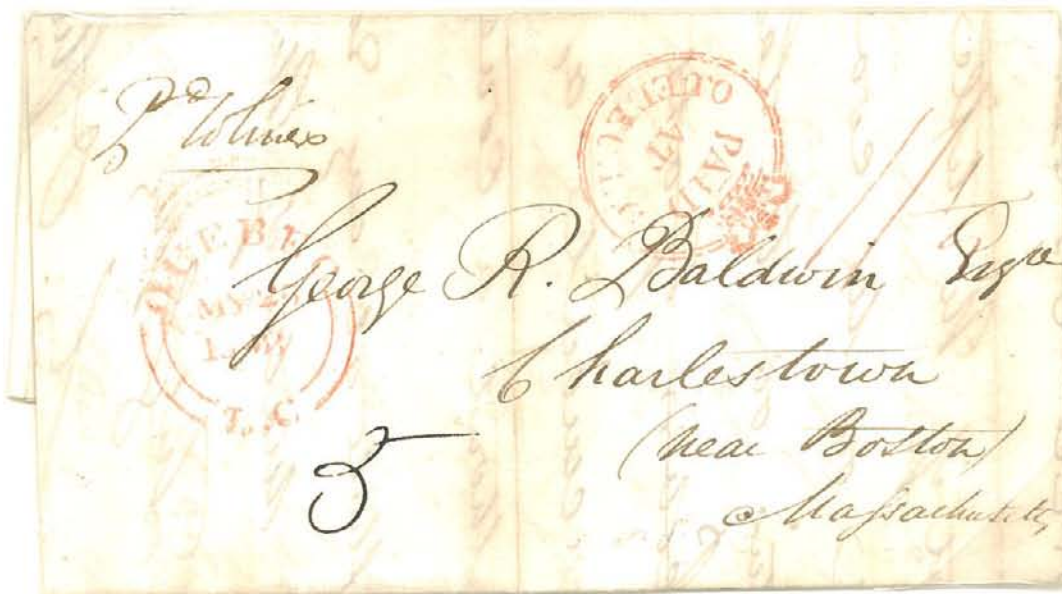 Pd to lines
PAID
AT
QUEBEC
QUEBEC
MY
L.C
George R. Baldwin Esqre
Charlestown
(near Boston)
Massachusetts